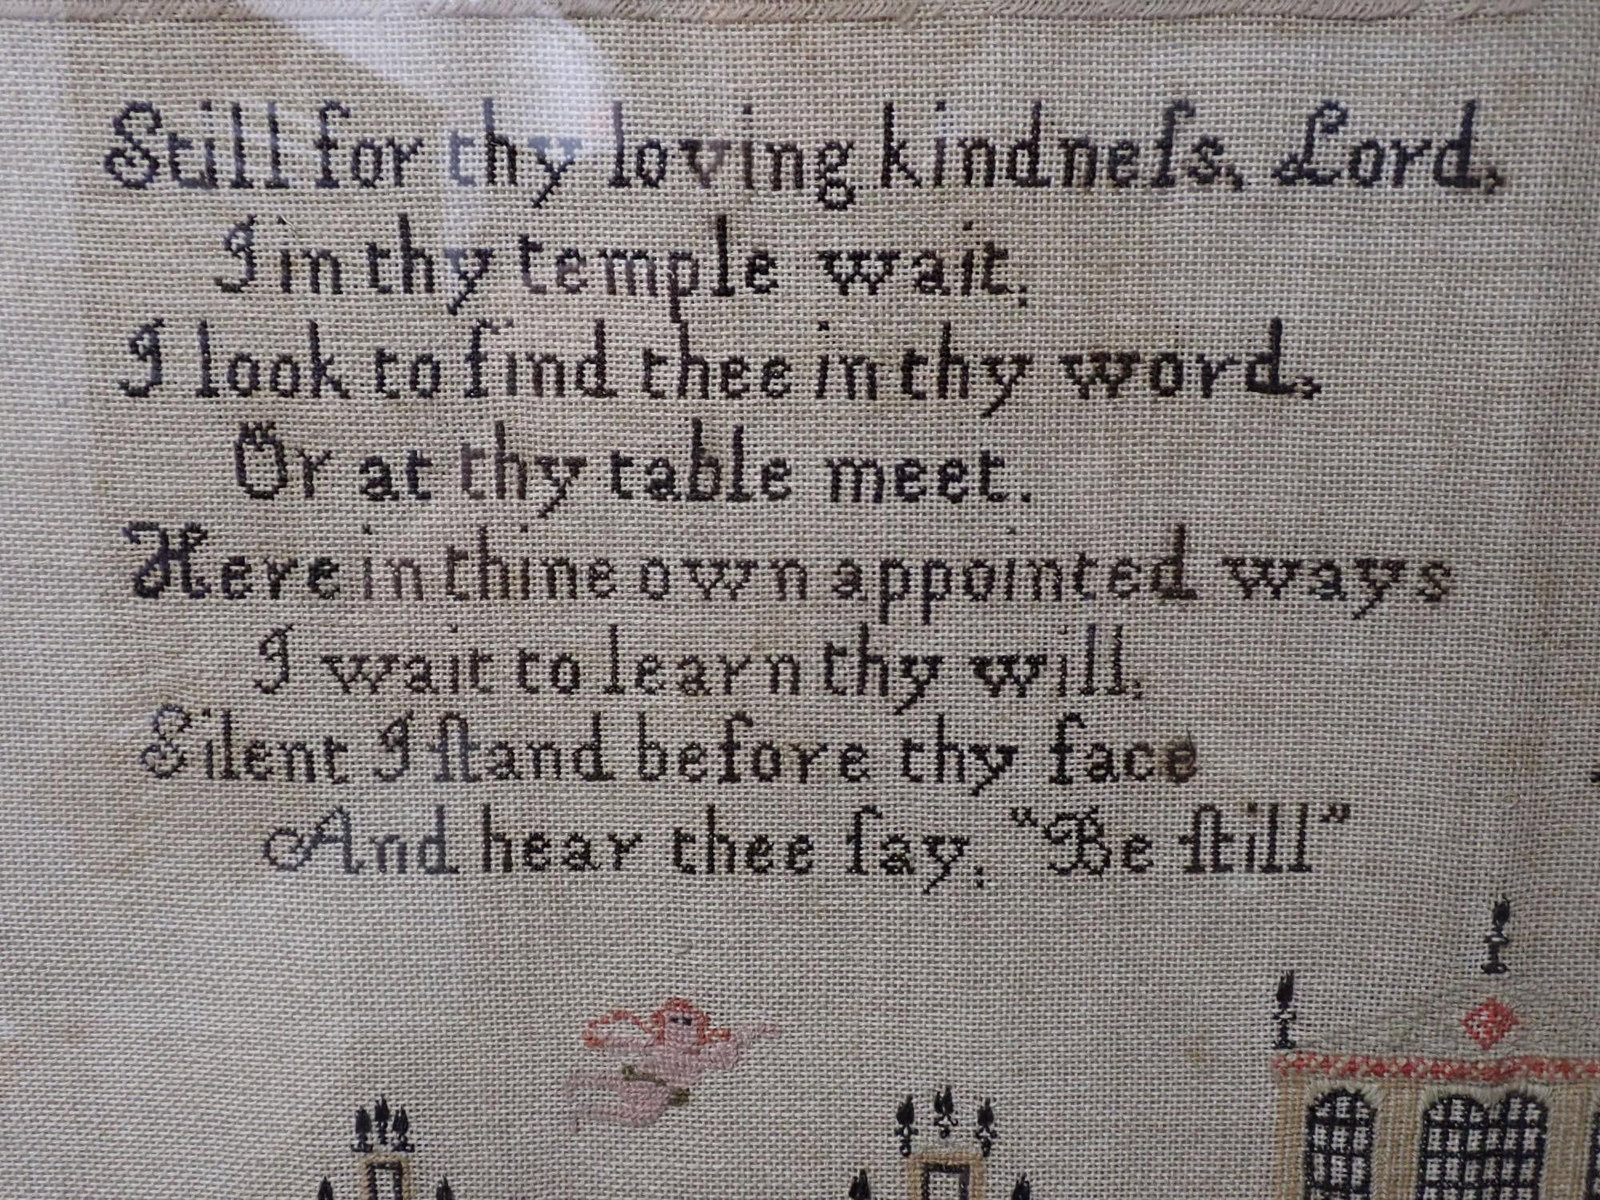 Still for thy loving kindneſs, Lord,
I in thy temple wait;
I look to find thee in thy word,
Or at thy table meet.
Here in thine own appointed ways
I wait to learn thy will;
Silent I ſtand before thy face
And hear thee ſay; "Be ſtill"